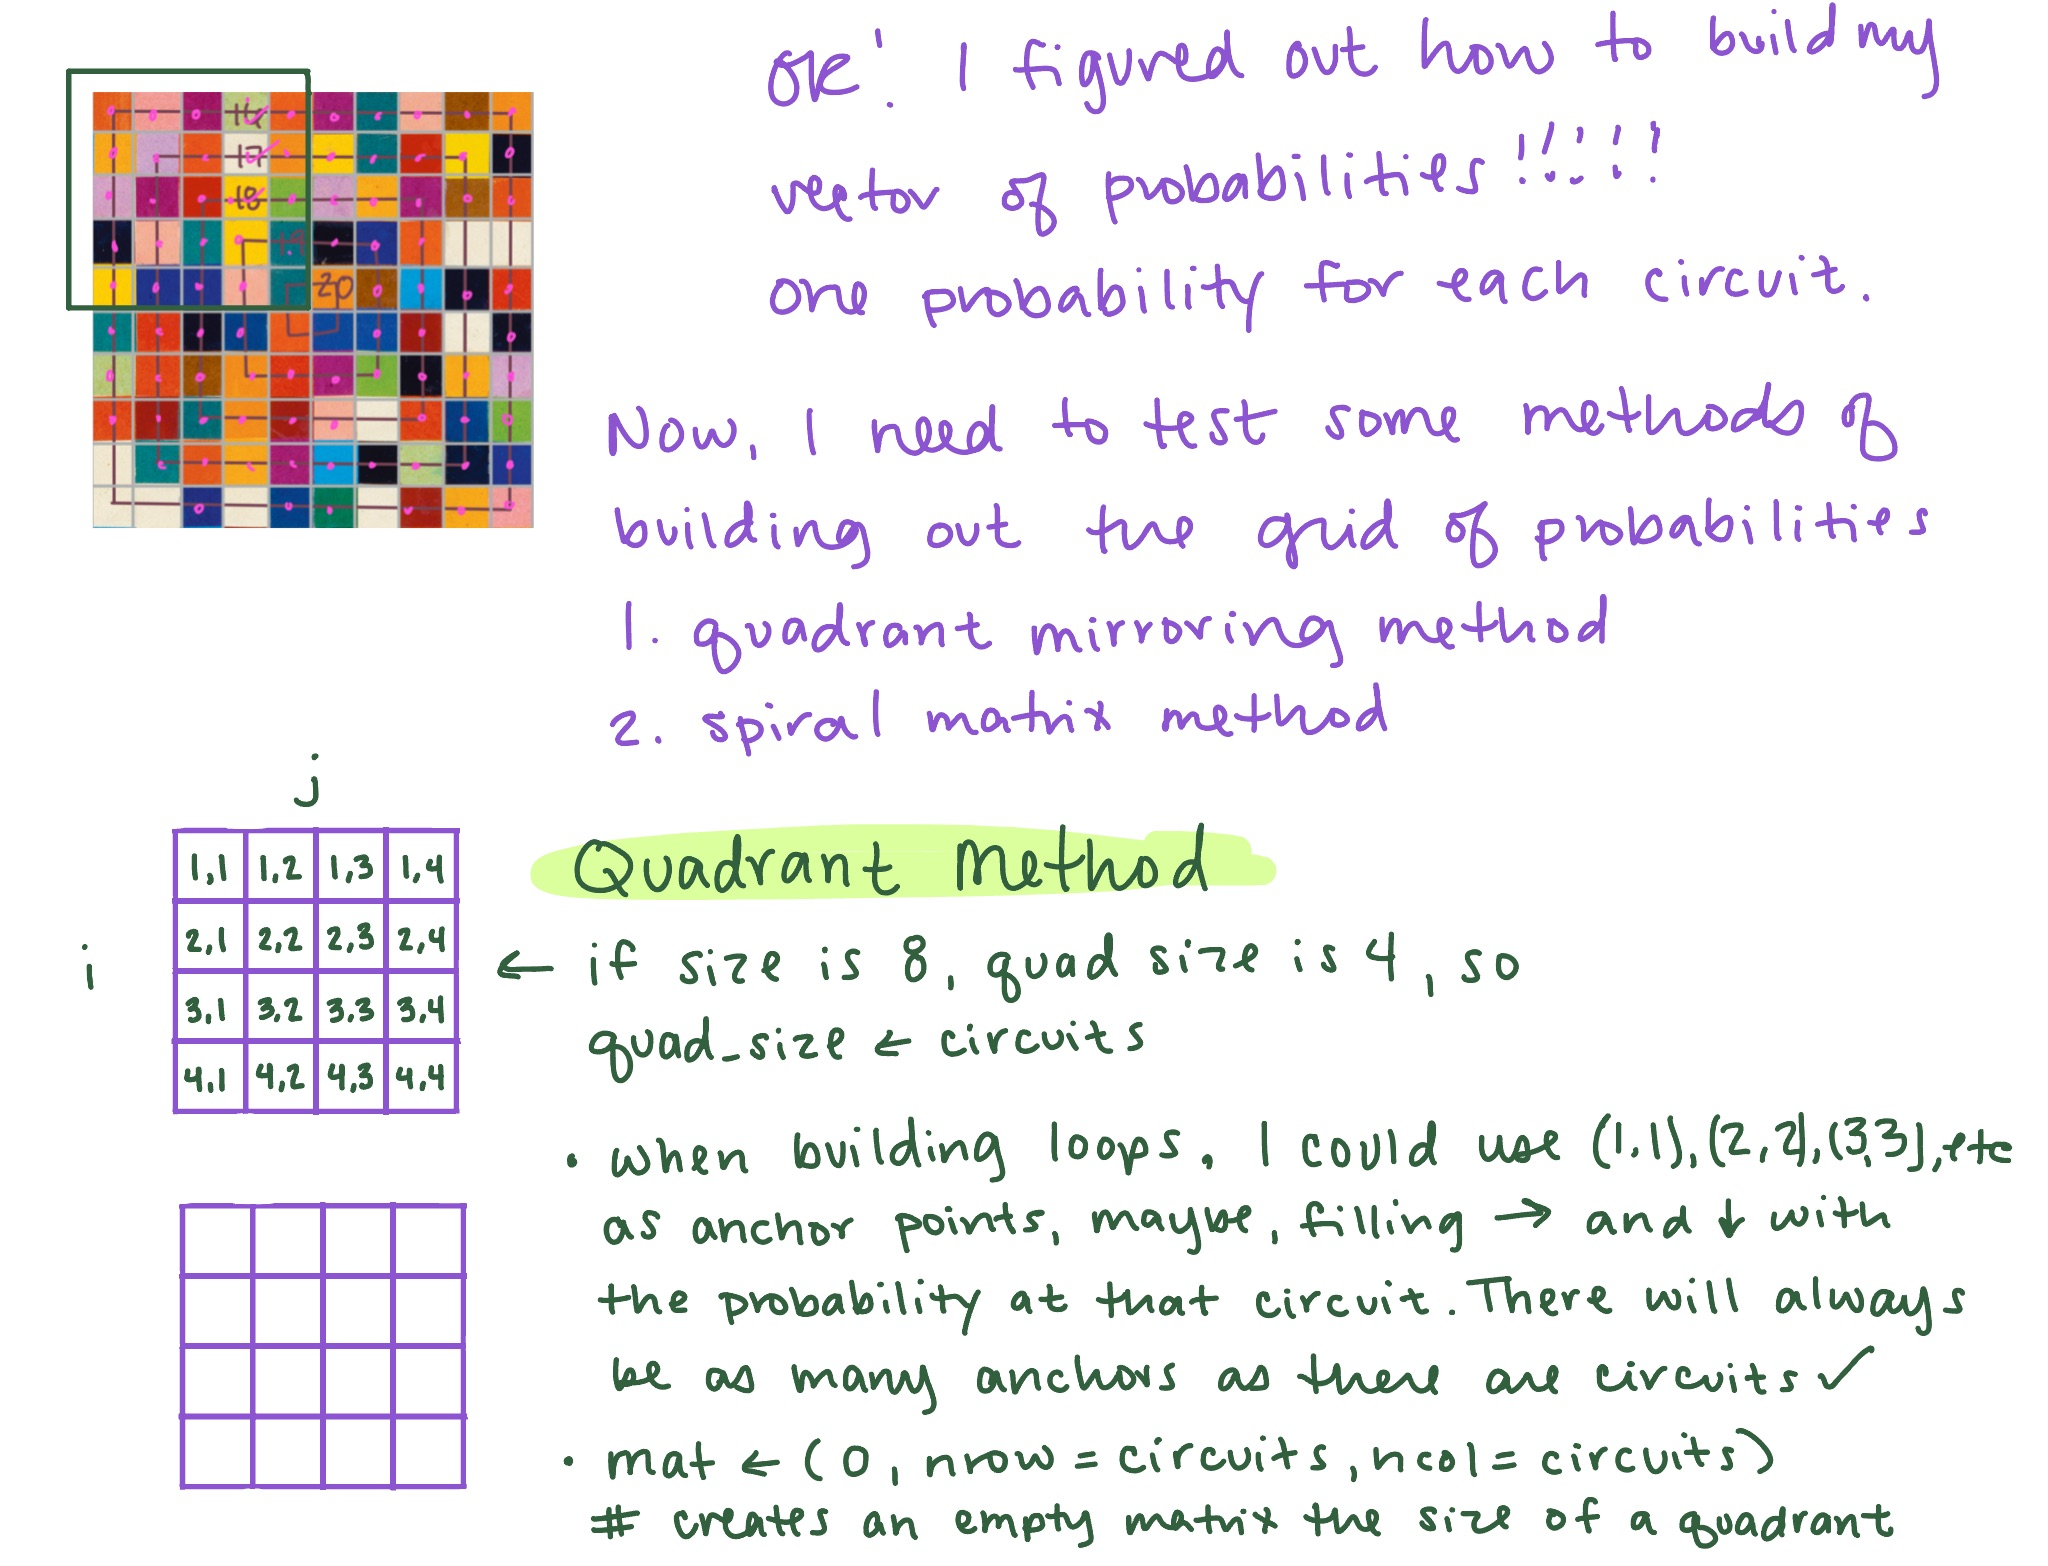 OK! I figured out how to build my
vector of probabilities!!!!!
one probability for each circuit.
16
17
18
19
20
Now, I need to test some methods of
building out the grid of probabilities
1. quadrant mirroring method
2. spiral matrix method
j
i
1,1 1,2 1,3 1,4
2,1 2,2 2,3 2,4
3,1 3,2 3,3 3,4
4,1 4,2 4,3 4,4
Quadrant Method
← if size is 8, quad size is 4, so
quad_size ← circuits
• when building loops, I could use (1,1), (2,2), (3,3), etc
as anchor points, maybe, filling → and ↓ with
the probability at that circuit. There will always
be as many anchors as there are circuits ✓
• mat ← (0, nrow = circuits, ncol = circuits)
# creates an empty matrix the size of a quadrant